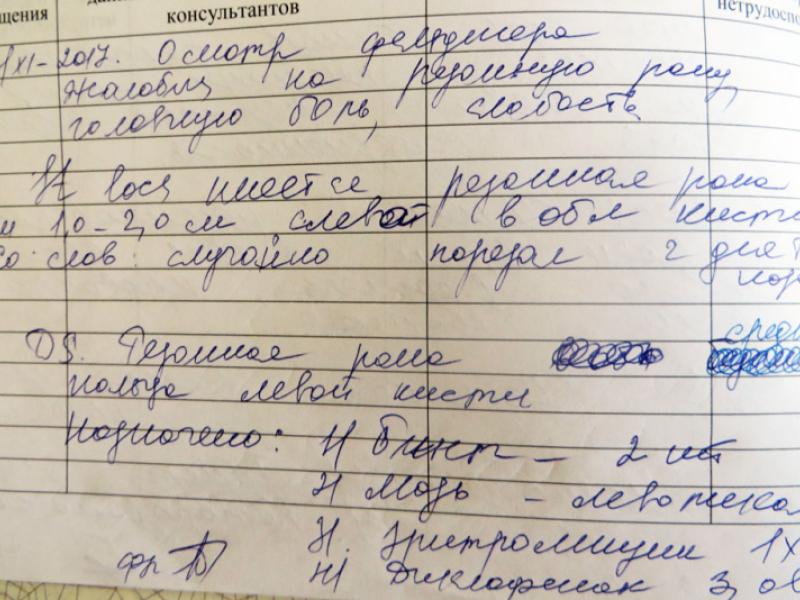 щения консультантов нетрудосп
XI-2017. Осмотр фельдшера
Жалобы на резанную рану,
головную боль, слабость
имеется резанная рана
1,0-2,0 см слевой в обл кисти
со слов: случайно порезал 2 дня
DS. Резанная рана
пальца левой кисти
Назначено: Н Бинт - 2 шт
Н Мазь - левомекол
Н. Эритромицин 1х
Н Диклофенак 3,0